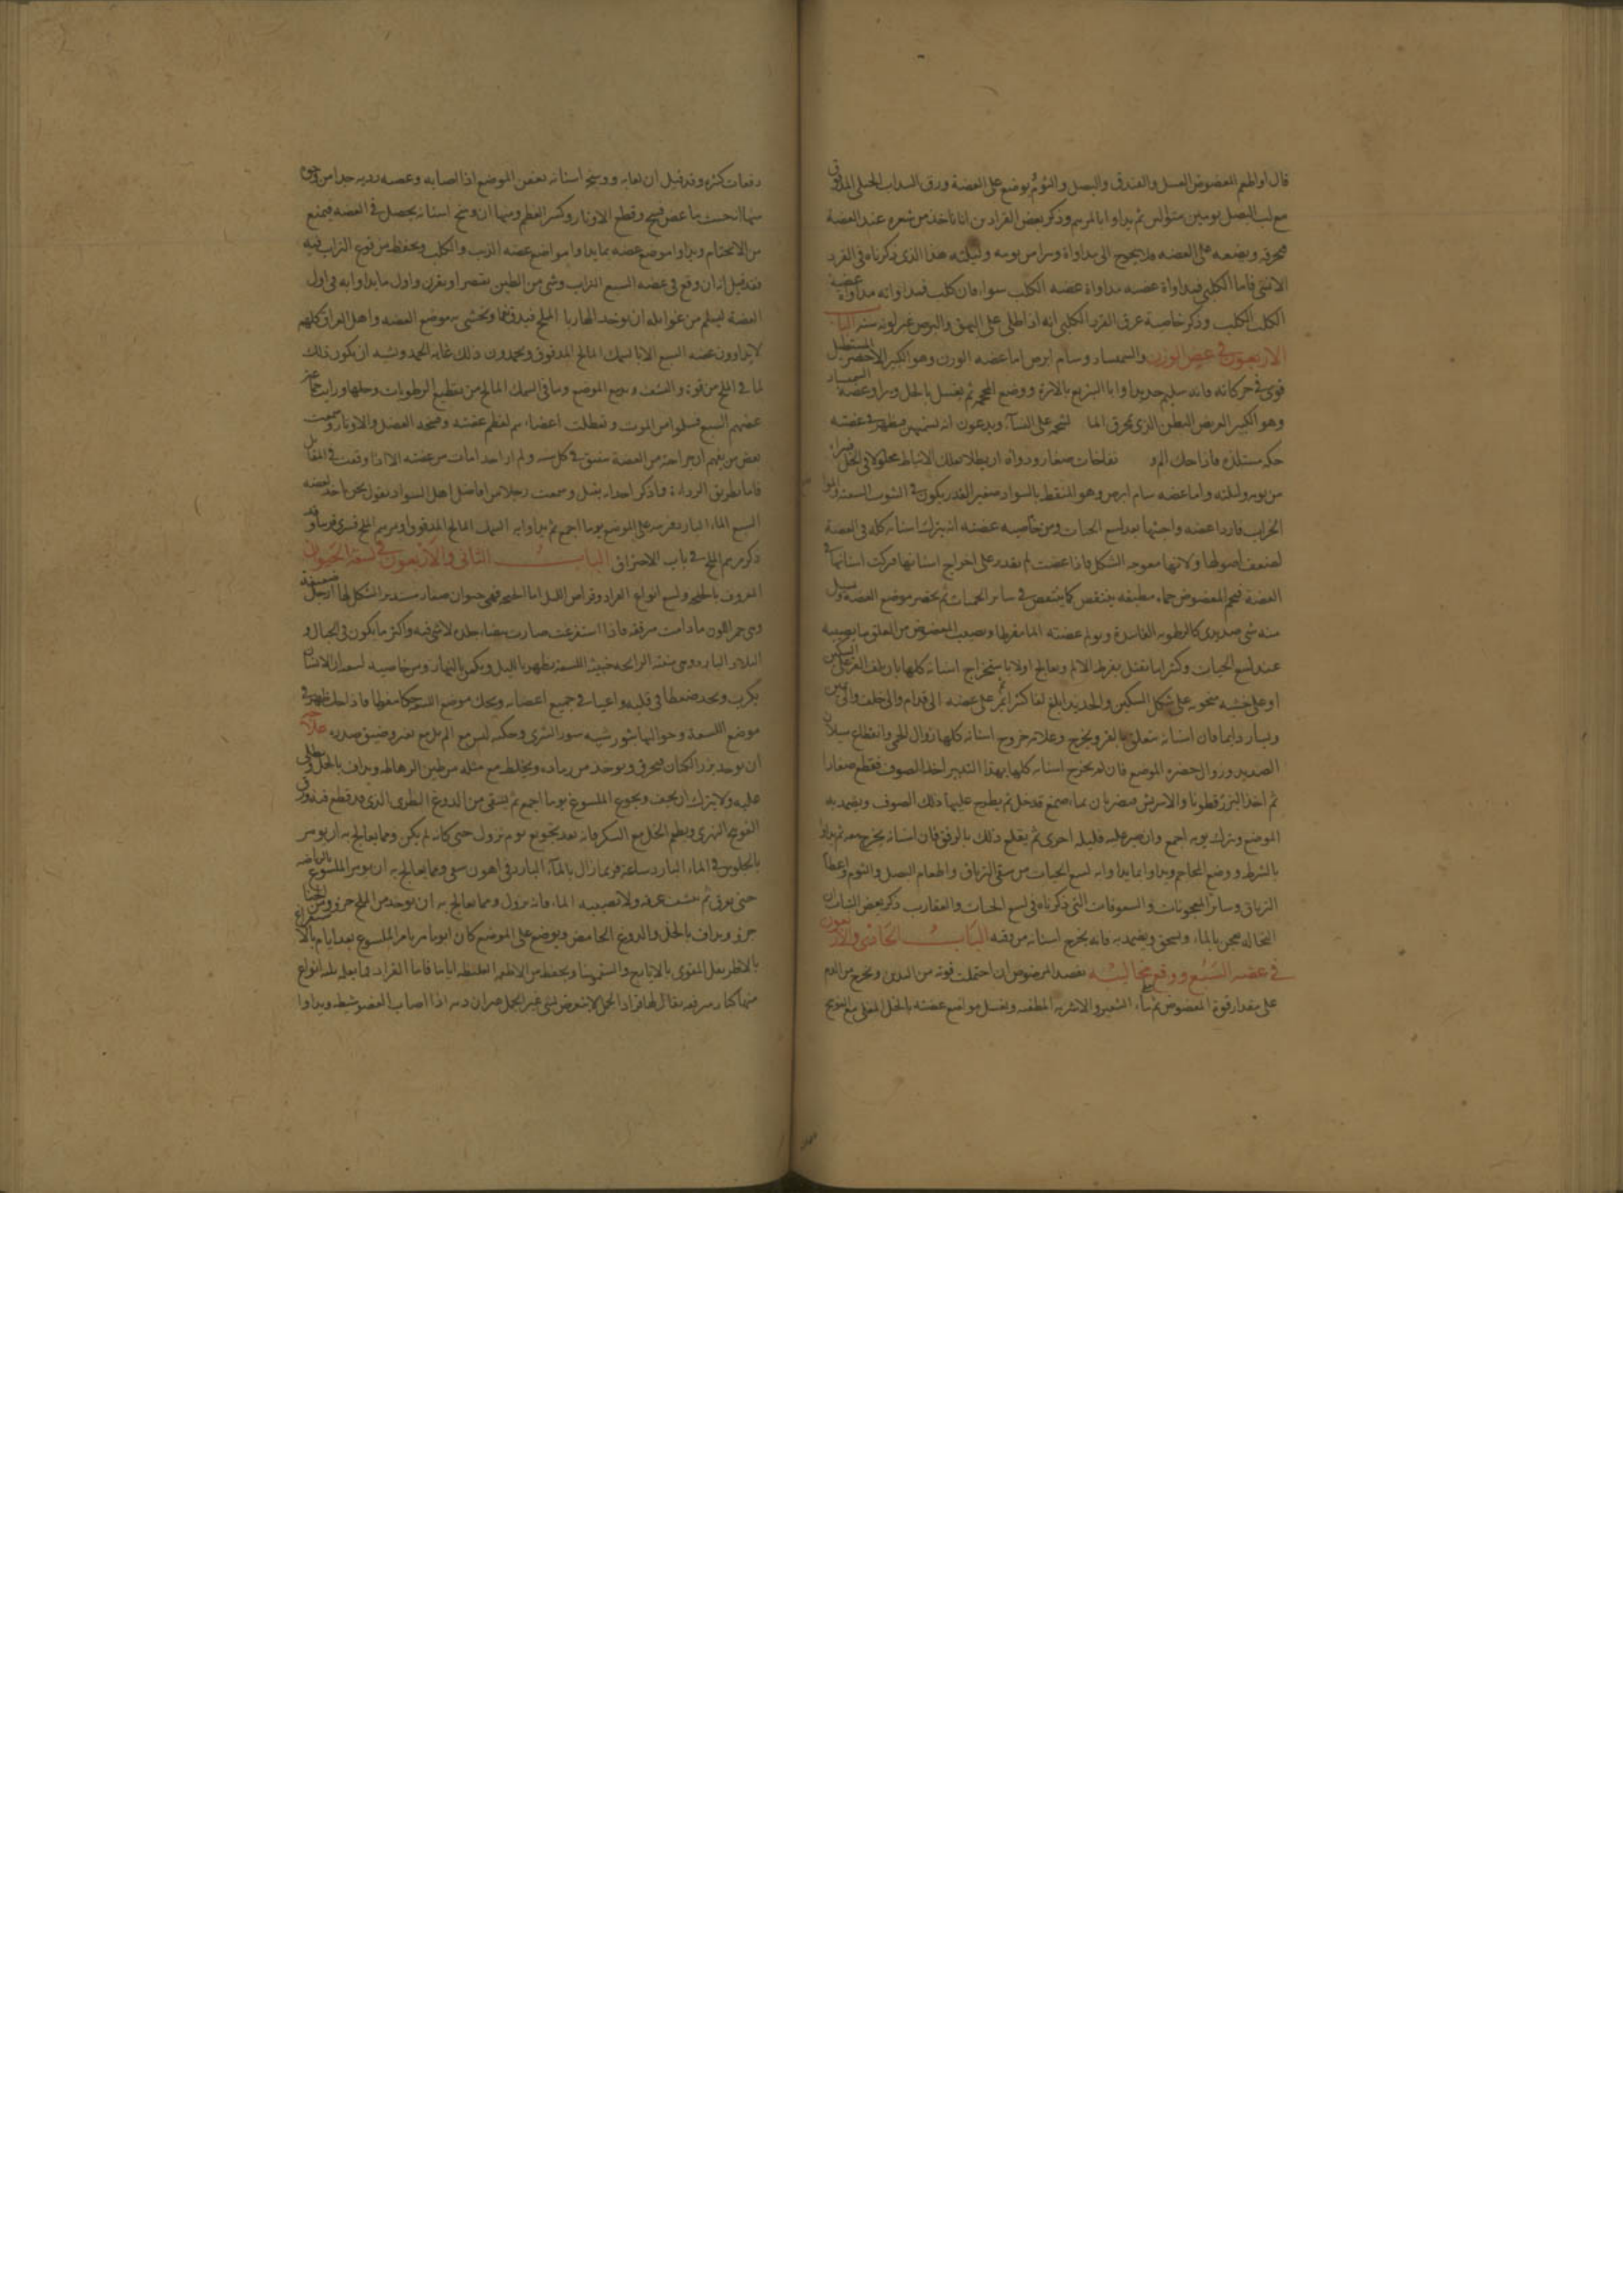 قال او اطعم المعضوض العسل والفندق والبصل والثوم يوضع على العضة ورق السداب الجبلى المدقوق
مع لب البصل يومين متوالين ثم يداوا بالمرهم وذكر بعض القرادين انا ناخذ من شعره عند العضة
فنحرقه ونضعه على العضه فلا يحوج الى مداواة ويبرا من يومه وليلته هذا الذى ذكرناه فى القرد
الانثى فاما الكلبى فمداواة عضته مداواة عضه الكلب سواء فان كلب فمداواته مداواة عضة
الكلب الكلب وذكر خاصية عرق القرد الكلبى انه اذا طلى على البهق والبرص غير لونه سنه الباب
الاربعون فى عض الورن والسمسار وسام ابرص اما عضه الورن وهو الكبير الاخضر المستطيل
قوى فى حركاته فانه سليم جدا ويداوا بالتبزيغ بالابرة ووضع المحجمه ثم يغسل بالخل ويبرا وعضة السمسار
وهو الكبير العريض البطن الذى يخرق الما لتجمه على النساء ويدعون انه فيظهر فى عضته
حكه مستلذه فاذا حك الم و نفاخات صغار ودواه ان يطلا بعلك الانباط محلولا فى الخل فيبرا
من يومه وليلته واما عضه سام ابرص وهو المنقط بالسواد صغير القدر يكون فى البيوت
الخراب فاردا عضه واخبثها بعد لسع الحيات ومن خاصيه عضته انه يترك اسنانه كلها فى العضة
لضعف اصولها ولانها معوجه الشكل فاذا عضت لم تقدر على اخراج اسنانها فتركت اسنانها فى
العضة فيحم المعضوض حماء مطبقه ينتقص كما ينتقص فى ساير الحميات ثم يخضر موضع العضه ويسيل
منه شى صديدى كالرطوبه الفاسدة ويولم عضته الما مفرطا ويصيب المعضوض من القلق ما يصيبه
عند لسع الحيات وكثيرا ما تقتل بفرط الالم ويعالج اولا باستخراج اسنانه كلها بان يلف القز على السكين
او على خشبه منحوته على شكل السكين والحديد ابلغ لفا كثيرا ثم يمر على عضه الى قدام والى خلف والى يمين
ويسار دايما فان اسنانه تتعلق بالقز ويخرج وعلامة خروج اسنانه كلها زوال الحمى وانقطاع سيلان
الصديد وزوال خضرة الموضع فان لم يخرج اسنانه كلها بهذا التدبير اخذ الصوف فقطع صغارا
ثم اخذ البزر قطونا والابريش فيضربان بماء صمغ قد حل ثم يطرح عليها ذلك الصوف ويضمد به
الموضع ويترك يومه اجمع وان صبر عليه فليله اخرى ثم يقلع ذلك بالرفق فان اسنانه يخرج معه ثم يداوا
بالشرط ووضع المحاجم ويداوا بما يداوا به لسع الحيات من سقى الترياق واطعام البصل والثوم واعطا
الترياق وساير المعجونات والسفوفات التى ذكرناه فى لسع الحيات والعقارب ذكر بعض
النخاله تعجن بالماء وتسحق ويضمد به فانه يخرج اسنانه من وقته الباب الحادى والاربعون
فى عضه السبع ووقع مخاليبه يفصد المعضوض ان احتملت قوته من اليدين ويخرج من الدم
على مقدار قوة المعضوض ثم بماء الشعير والاشربه المطفيه ويغسل مواضع عضته بالخل المغلى مع الفوتنج
دفعات كثيره وقد قيل ان لعابه ووسخ اسنانه يعفن الموضع اذا اصابه وعضه رديه جدا من وجوه
منها انه حيث ما عض فسخ وقطع الاوتار وكسر العظم ومنها ان وسخ اسنانه يحصل فى العضه فيمنع
من الالتحام ويداوا موضع عضه بما يداوا مواضع عضه الذيب والكلب ويحفظ من وقوع التراب فيه
فقد قيل انه ان وقع فى عضه السبع التراب وشى من الطين واول ما يداوا به فى اول
العضة ليسلم من غوايله ان يوخذ الملح فيدق ويحشى به موضع العضه واهل العراق كلهم
لا يداوون عضه السبع الا بالسمك المالح المدقوق ويحمدون ذلك غايه الحمد ويشبه ان يكون ذلك
لما فى الملح من قوة والنشف وما فى السمك المالح من تقطيع الرطوبات وحلها ورايت جماعة
عضهم السبع فسلموا من الموت وتعطلت اعضاءهم لعظم عضته وفسخه العضل والاوتار وسمعت
بعض من يفهم ان جراحة من العضة تنتقض فى كل سنه ولم ار احدا مات من عضته الا اذا وقعت فى المقاتل
السبع الماء البارد على الموضع يوما اجمع ثم يداوا به السمك المالح المدقوق او مرهم الملح وقد
ذكر مرهم الملح فى باب الاحتراق الباب الثانى والاربعون فى لسعة الحيوان
المعروف ولسع انواع القراد وقراص الليل اما فهى حيوان صغار مستدير الشكل لها ارجل ضعيفة
وهى حمر اللون ما دامت فاذا استفرغت صارت بيضاء جلده لا شى فيه واكثر ما يكون فى الجبال و
البلاد البارده وهى منتنة الرايحه خبيثه اللسعة يظهر بالليل ويكمن بالنهار ومن خاصيه لسعه ان الانسان
يكرب ويجد ضغطا فى قلبه واعياء فى جميع اعضائه ويحك موضع اللسعه حكا مفرطا فاذا حك ظهر فى
موضع اللسعة وحواليها بثور شبيه بثور الشرى وحكه ليس مع الم بل مع وضيق صدره علاجه
ان يوخذ بزر الكتان فيحرق ويوخذ من رماده ويخلط مع مثله من طين ويداف بالخل ويطلى
عليه ولا يترك ان يجف ويجوع الملسوع يوما اجمع ثم يسقى من الدوغ الطرى الذى قد قطع فيه ورق
الفوتنج النهرى ويطعم الخل مع السكر فانه بعد تجويع يوم يزول حتى كانه لم يكن ومما يعالج به ان يومر
بالجلوس فى الماء البارد ساعة فربما زال بالماء البارد فى اهون سعى ومما يعالج به ان يومر الملسوع بالرياضه
حتى يعرق ثم ينشف عرقه ولا يصيبه الماء فانه يزول ومما يعالج به ان يوخذ من الملح جزو ومن الحنا
جزو ويداف بالخل والدوغ الحامض ويوضع على الموضع كان ابو ماهر يامر الملسوع بعد ايام بالاستفراغ
بالاطريفل المقوى بالايارج والسقمونيا ويحفظ من الاطعمه الغليظه اياما فاما القراد فهى ثلثه انواع
منها كبار يقال لها قراد الجمل لا يتعرض لشى غير الجمل اذا اصاب العضو شيطه ويداوا